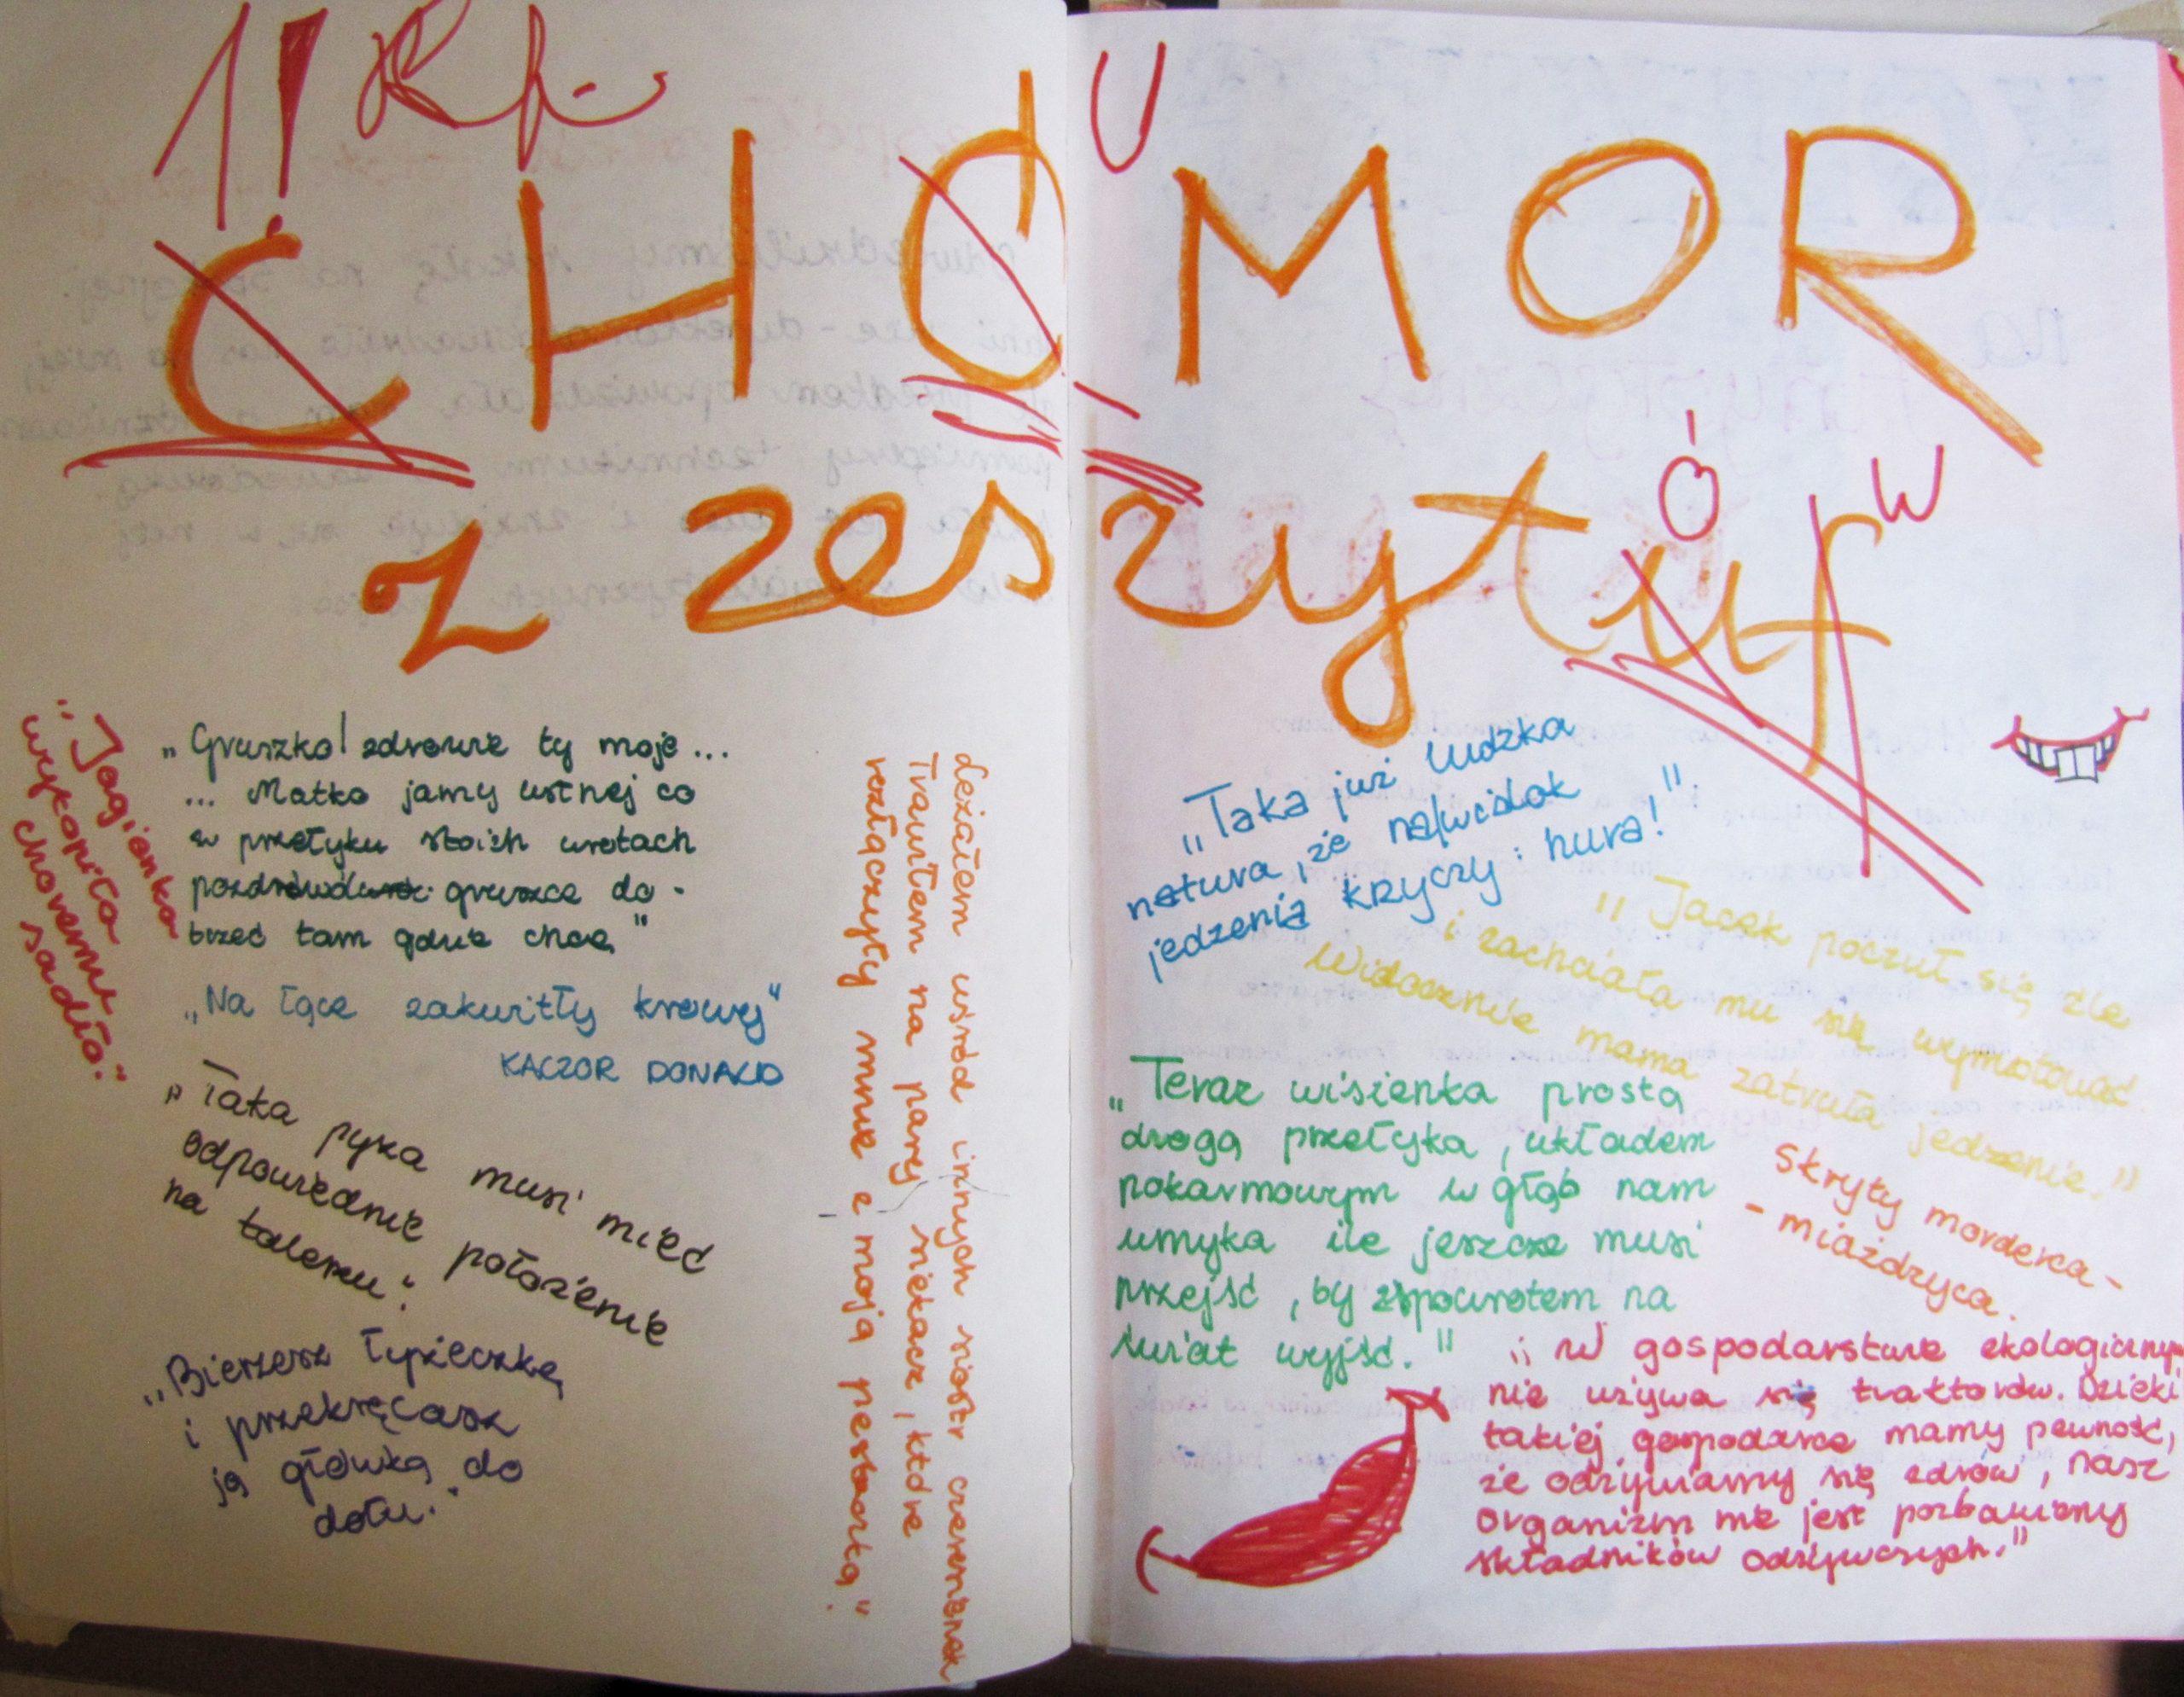 1!
U
CHÓMOR
z zeszytuf
ó w
„Jagienka
wykopiła
choremu
sadło."
„Gruszko! zdrowie ty moje...
... Matko jamy ustnej co
w przełyku stoisz wrotach
gruszce do-
brzeć tam gdzie chce"
„Na łące zakwitły krowy"
KACZOR DONALD
„Taka pyza musi mieć
odpowiednie położenie
na talerzu."
„Bierzesz łyżeczkę
i przekręcasz
ją główką do
dołu."
Leżałem wśród innych sióstr czereśniones
Trawiłem na parę siekacz, które
rozłączyły mnie z moją pestką"
„Taka już ludzka
natura, że na widok
jedzenia krzyczy: hura!"
„Jacek poczuł się źle
i zachciało mu się wymiotować.
Widocznie mama zatruła jedzenie."
„Teraz wisienka prostą
drogą przełyka, układem
pokarmowym w głąb nam
umyka ile jeszcze musi
przejść, by zspowrotem na
świat wyjść."
Skryty morderca-
-miażdżyca.
„W gospodarstwie ekologiczny
nie używa się traktorów. Dzięki
takiej gospodarce mamy pewność,
że odżywiamy się zdrow, nasz
organizm nie jest pozbawiony
składników odżywczych."